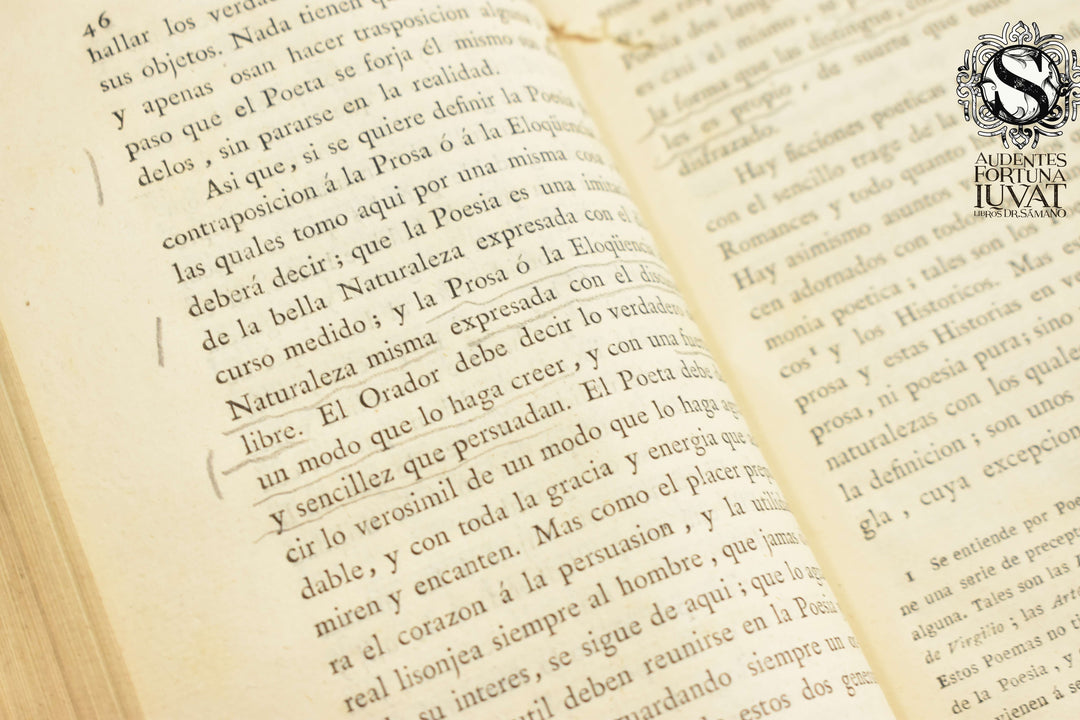 46
hallar los verda
sus objetos. Nada tienen
y apenas osan hacer trasposicion alguna
paso que el Poeta se forja él mismo
delos, sin pararse en la realidad.
Asi que, si se quiere definir la Poesia
contraposicion á la Prosa ó á la Eloqüencia
las quales tomo aqui por una misma cosa
deberá decir; que la Poesia es una imita
de la bella Naturaleza expresada con el
curso medido; y la Prosa ó la Eloqüencia
Naturaleza misma expresada con el discu
libre. El Orador debe decir lo verdadero
un modo que lo haga creer, y con una fuer
y sencillez que persuadan. El Poeta debe
cir lo verosimil de un modo que lo haga ag
dable, y con toda la gracia y energia que
miren y encanten. Mas como el placer prep
ra el corazon á la persuasion, y la utilid
real lisonjea siempre al hombre, que jamas
su interes, se sigue de aqui; que lo ag
util deben reunirse en la Poesia
guardando siempre un
estos dos gene
es casi el mismo
la forma que las distingue, con
las es propio, de suerte que todo
disfrazado.
Hay ficciones poeticas
con el sencillo trage de la
Romances y todo quanto
Hay asimismo asuntos
cen adornados con todo
monia poetica; tales son los
cos¹ y los Historicos. Mas es
prosa y estas Historias en ve
prosa, ni poesia pura; sino
naturalezas con los quales
la definicion; son unos
gla, cuya excepcion
1 Se entiende por Poe
ne una serie de precept
alguna. Tales son las
de Virgilio; las Arte
Estos Poemas no ti
de la Poesia, y
S
AUDENTES
FORTUNA
IUVAT
LIBROS DR. SÁMANO